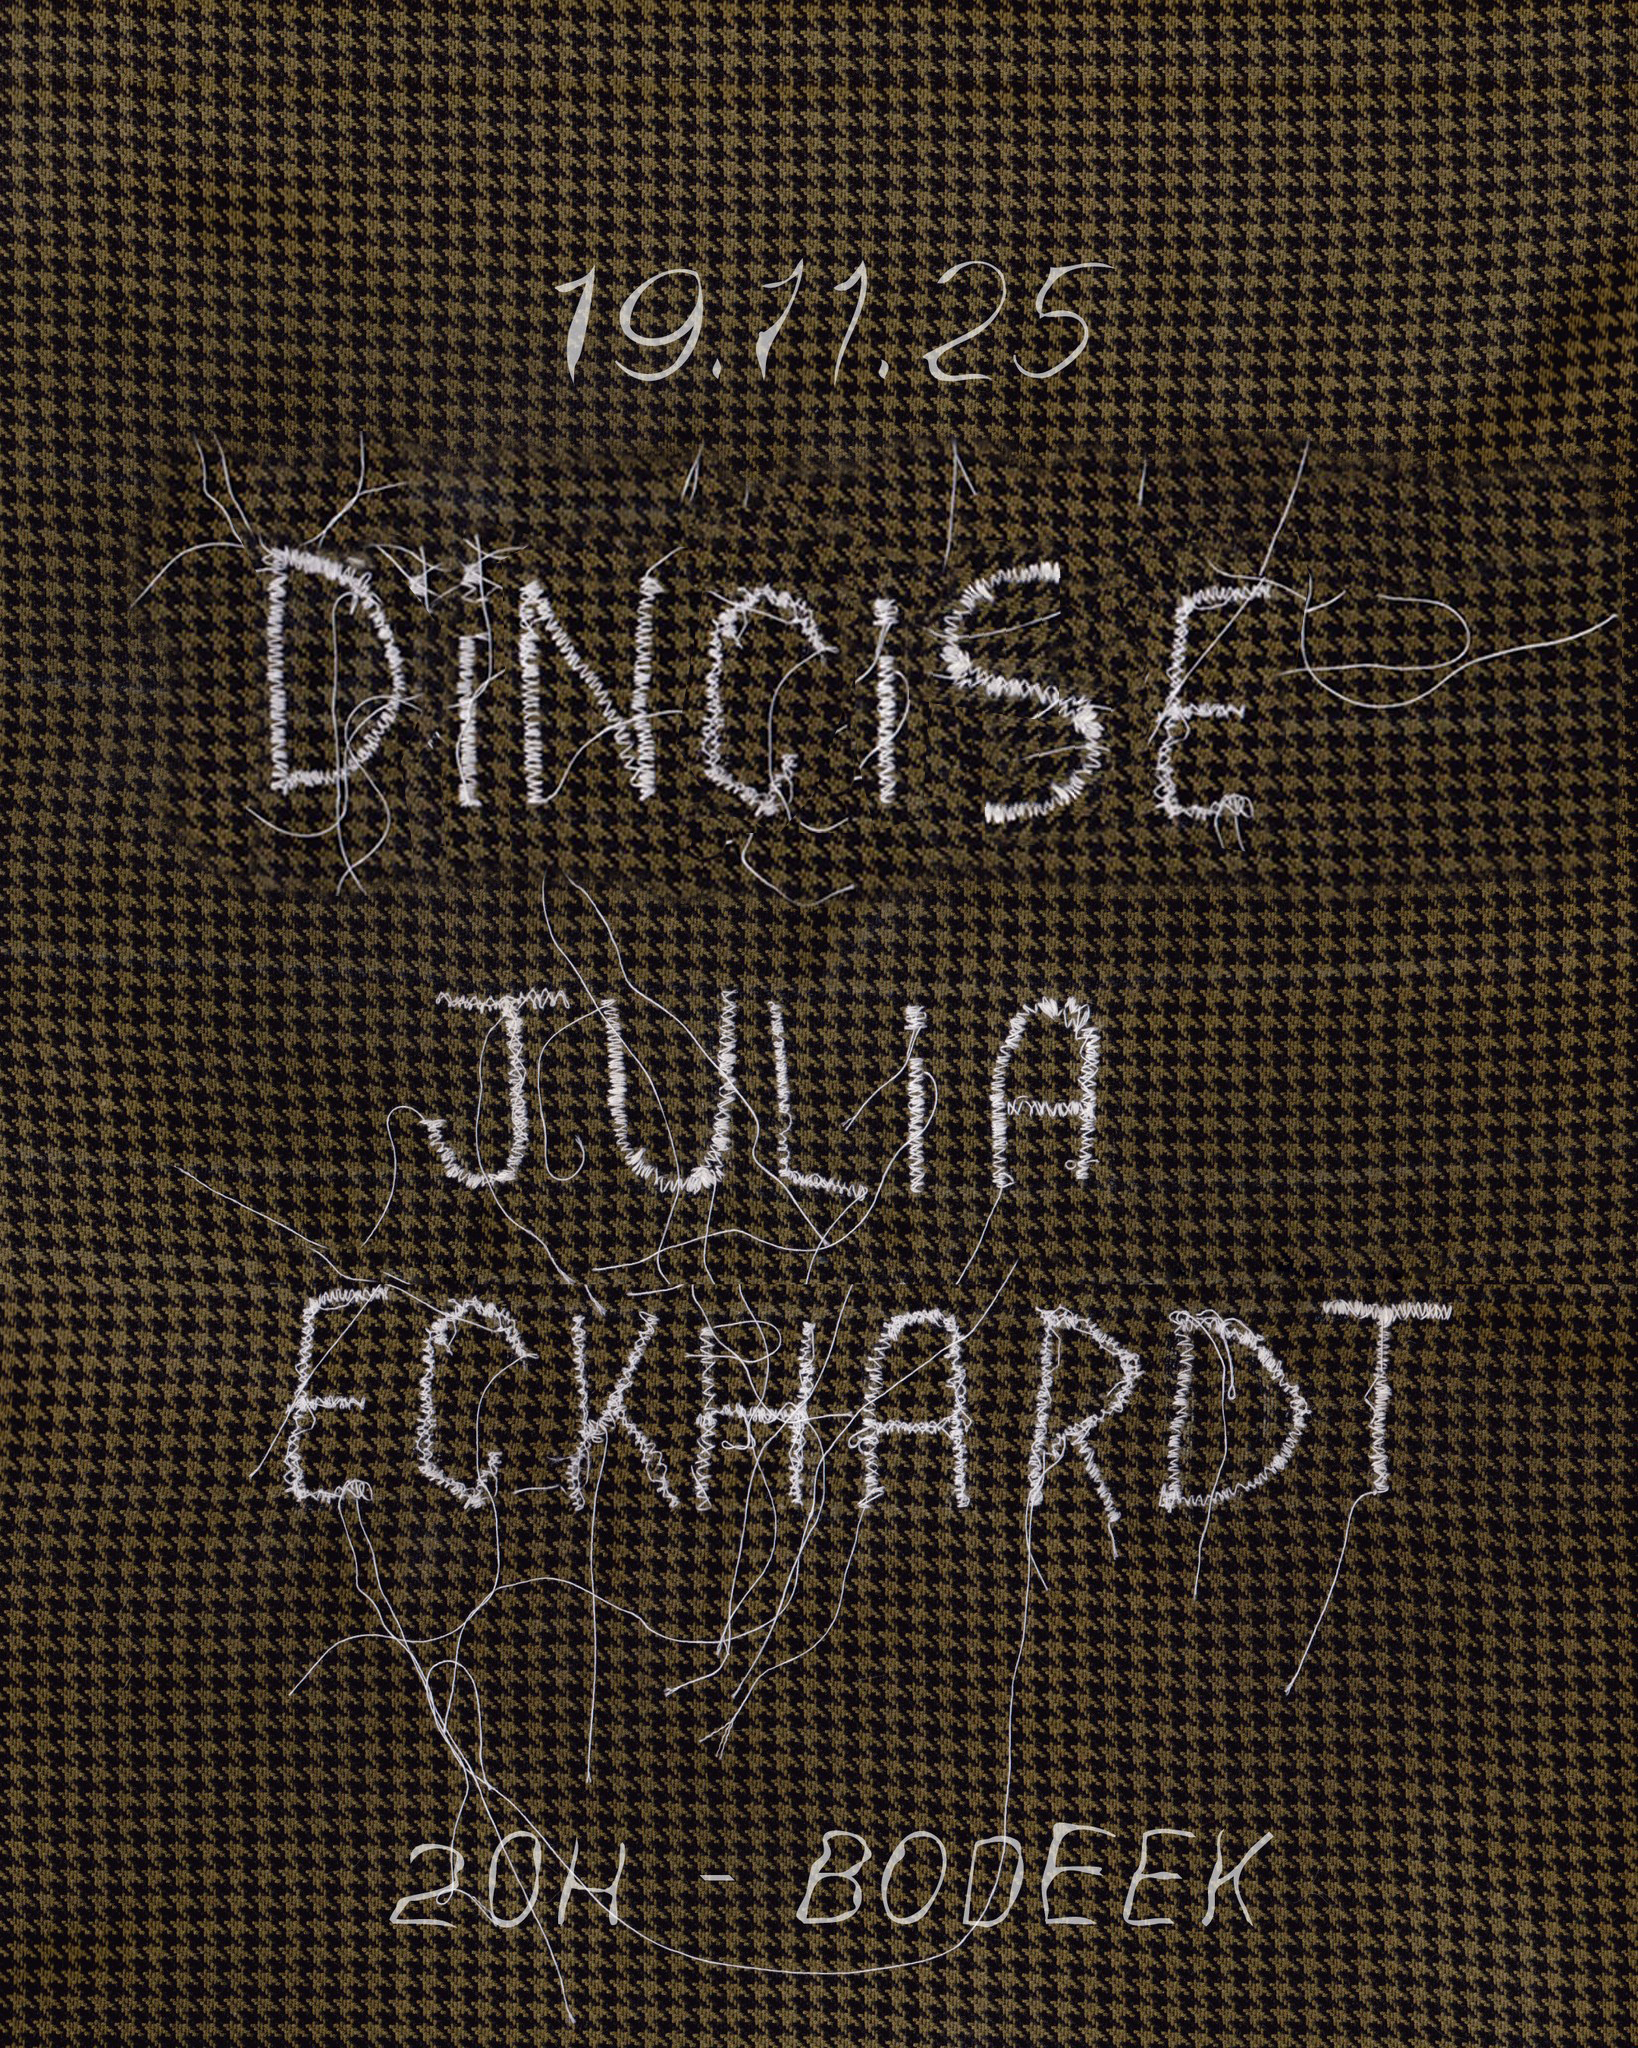 19.11.25
D'INCISE
JULIA
ECKHARDT
20H - BODEEK